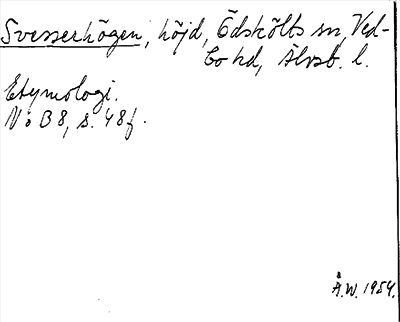 Svesserhögen, höjd, Ödskölts sn, Ved-
bo hd, Älvsb. l.
Etymologi.
N: o B 8, s. 48 f.
Å.W. 1954.